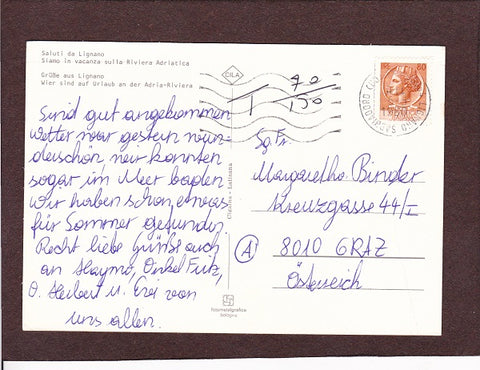 Saluti da Lignano
Siamo in vacanza sulla Riviera Adriatica
Grüße aus Lignano
Wier sind auf Urlaub an der Adria-Riviera
CILA
T 70/150
Sind gut angekommen
Wetter war gestern wun-
derschön wir konnten
sogar im Meer baden.
Wir haben schon etwas
für Sommer gefunden
Recht liebe Grüße auch
an Haymo, Onkel Fritz,
O. Herbert u. Evi von
uns allen.
Sg. Fr.
Margarethe Binder
Kreuzgasse 44/I
A 8010 GRAZ
Österreich
fotometalgrafica
bologna